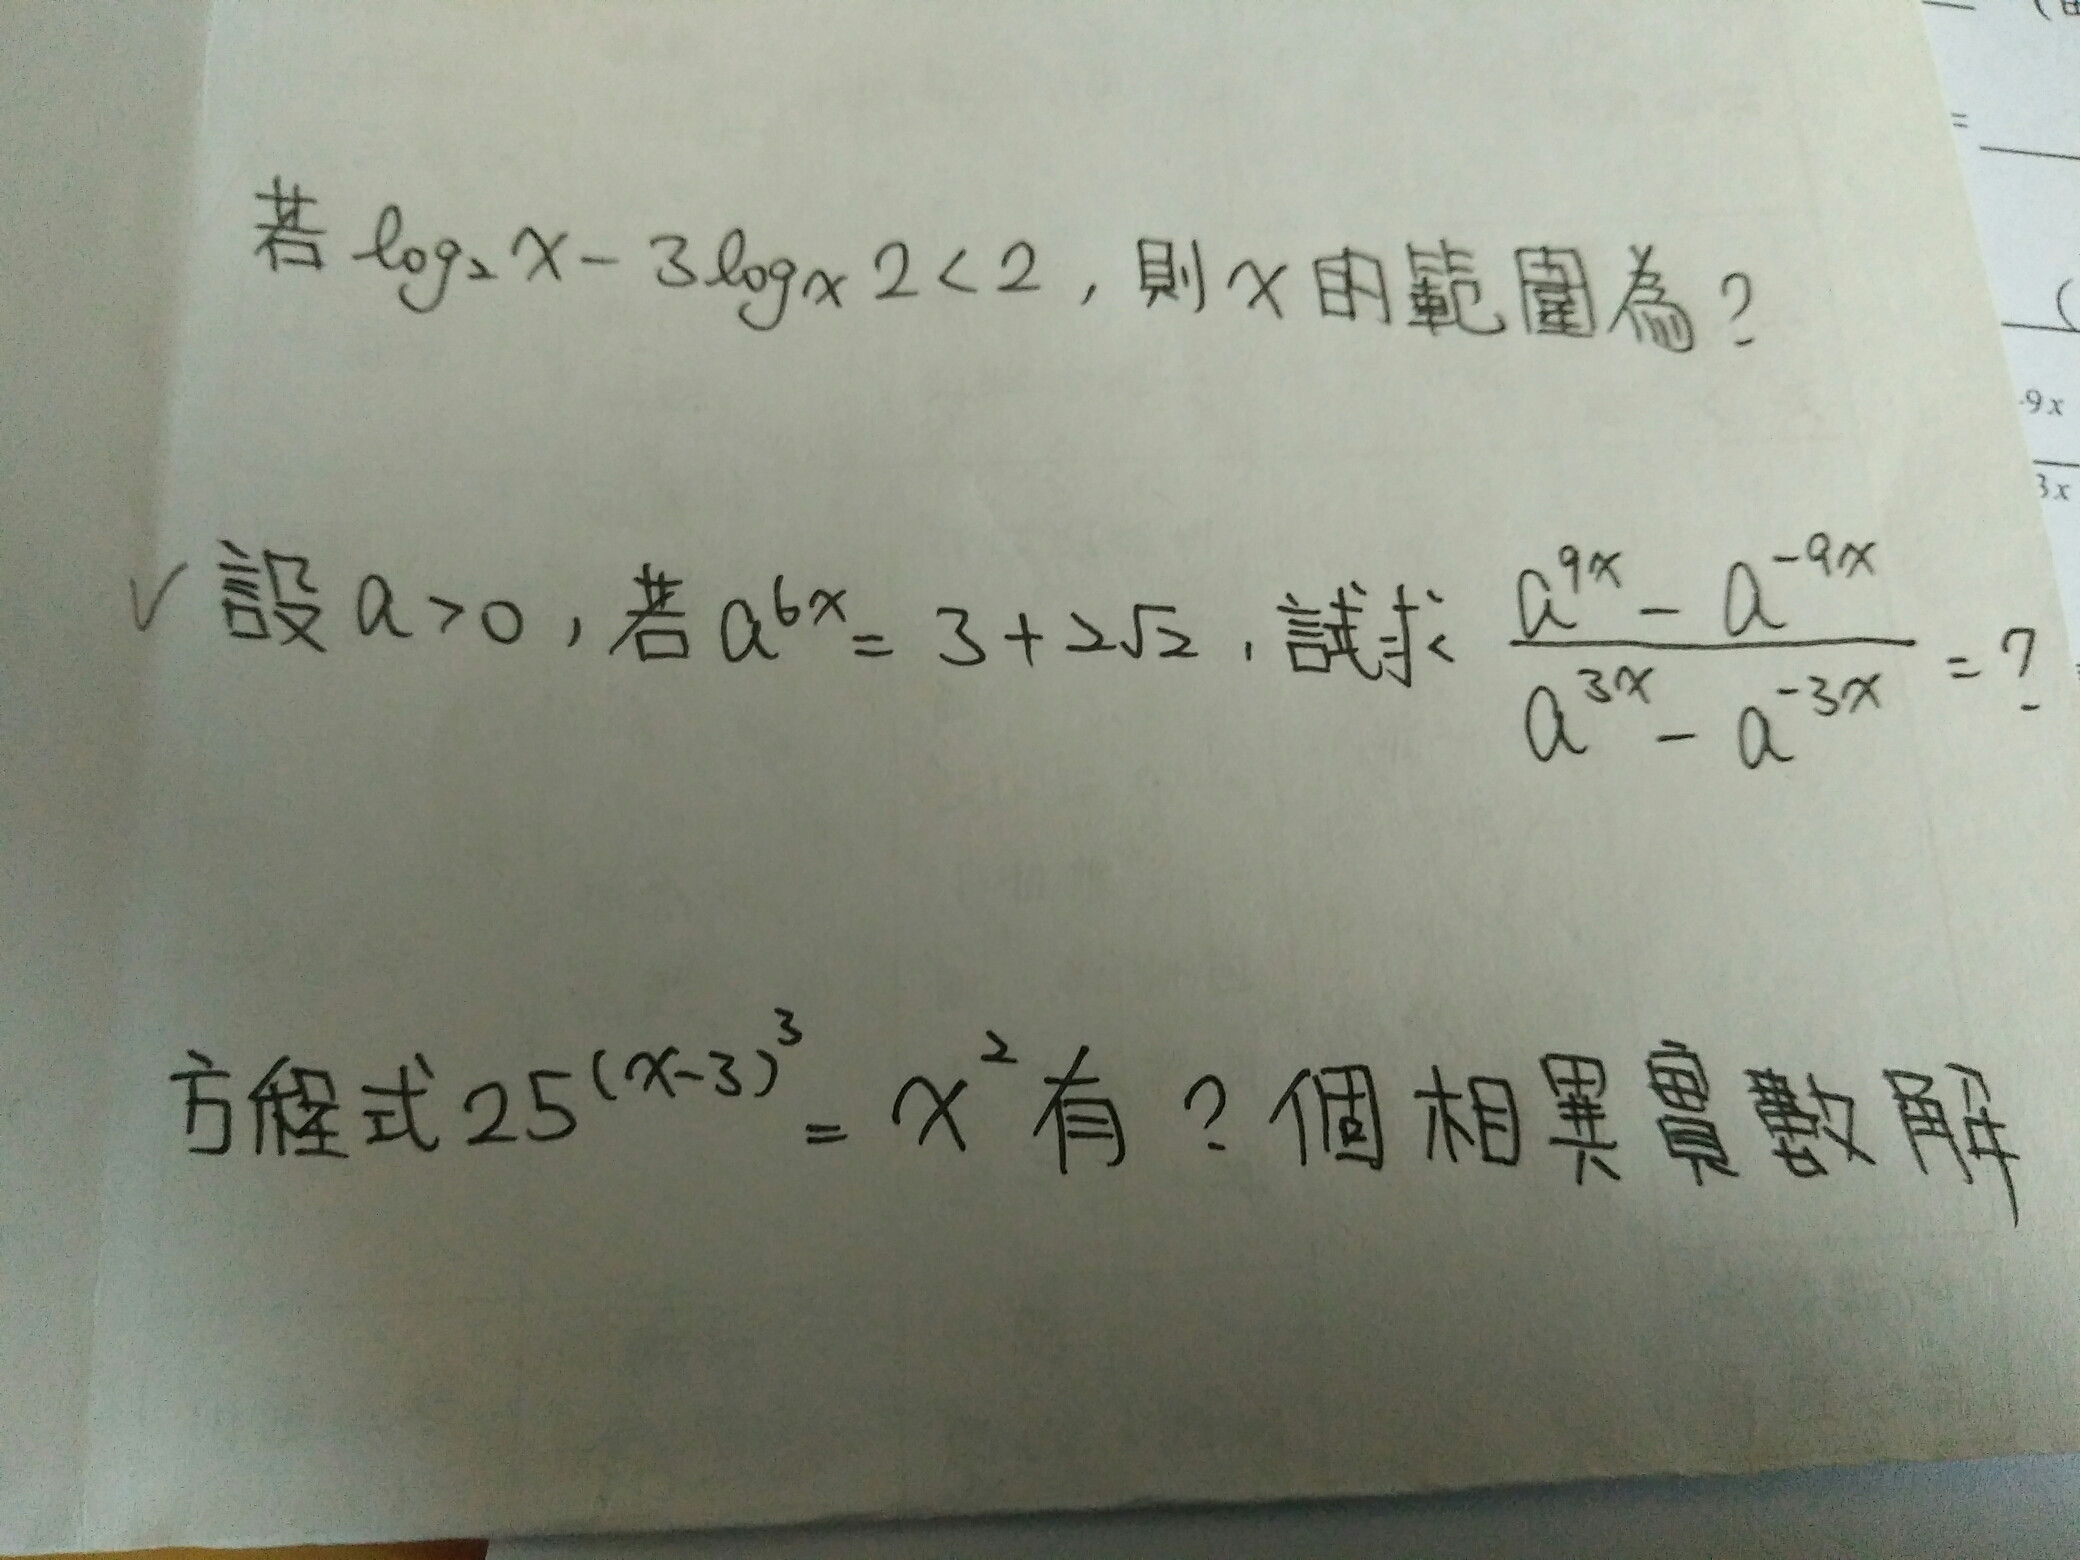 若 log₂x - 3logₓ2 < 2, 則 x 的範圍為?
✓設 a>0, 若 a^{6x} = 3+2√2, 試求 \frac{a^{9x} - a^{-9x}}{a^{3x} - a^{-3x}} = ?
方程式 25^{(x-3)^3} = x^2 有?個相異實數解
=
-9x
3x